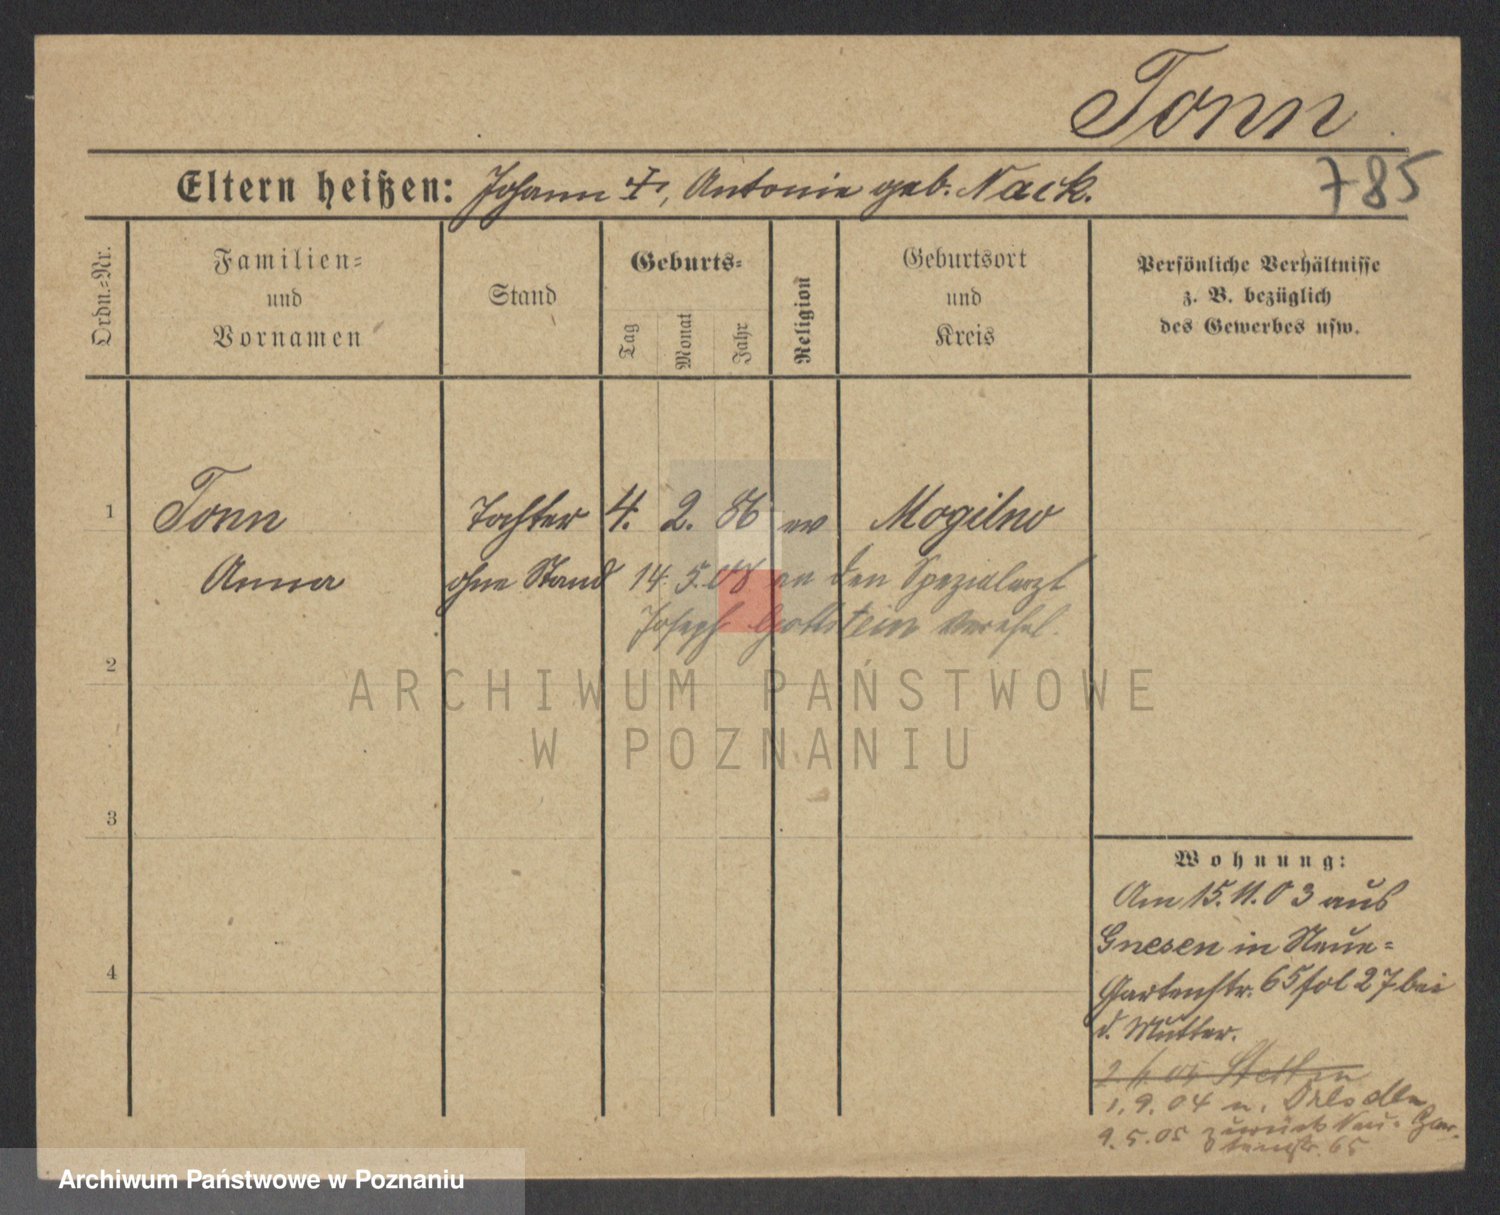 Tonn
785
Eltern heißen: Johann †, Antonie geb. Nack.
Ordn.-Nr.
Familien-
und
Vornamen
Stand
Geburts-
Tag
Monat
Jahr
Religion
Geburtsort
und
Kreis
Persönliche Verhältnisse
z. B. bezüglich
des Gewerbes usw.
1
Tonn Tochter 4. 2. 86 ev Mogilno
Anna ohne Stand 14. 5. 08 an den Spezialarzt
Joseph Gottstein verehel.
2
ARCHIWUM PAŃSTWOWE
W POZNANIU
3
Wohnung:
Am 15.11.03 aus
Gnesen in Neue-
Gartenstr. 65 fol 27 bei
4
d. Mutter.
Stettin
1.9.04 n. Dresden
9.5.05 zurück Neue Gar-
tenstr. 65
Archiwum Państwowe w Poznaniu